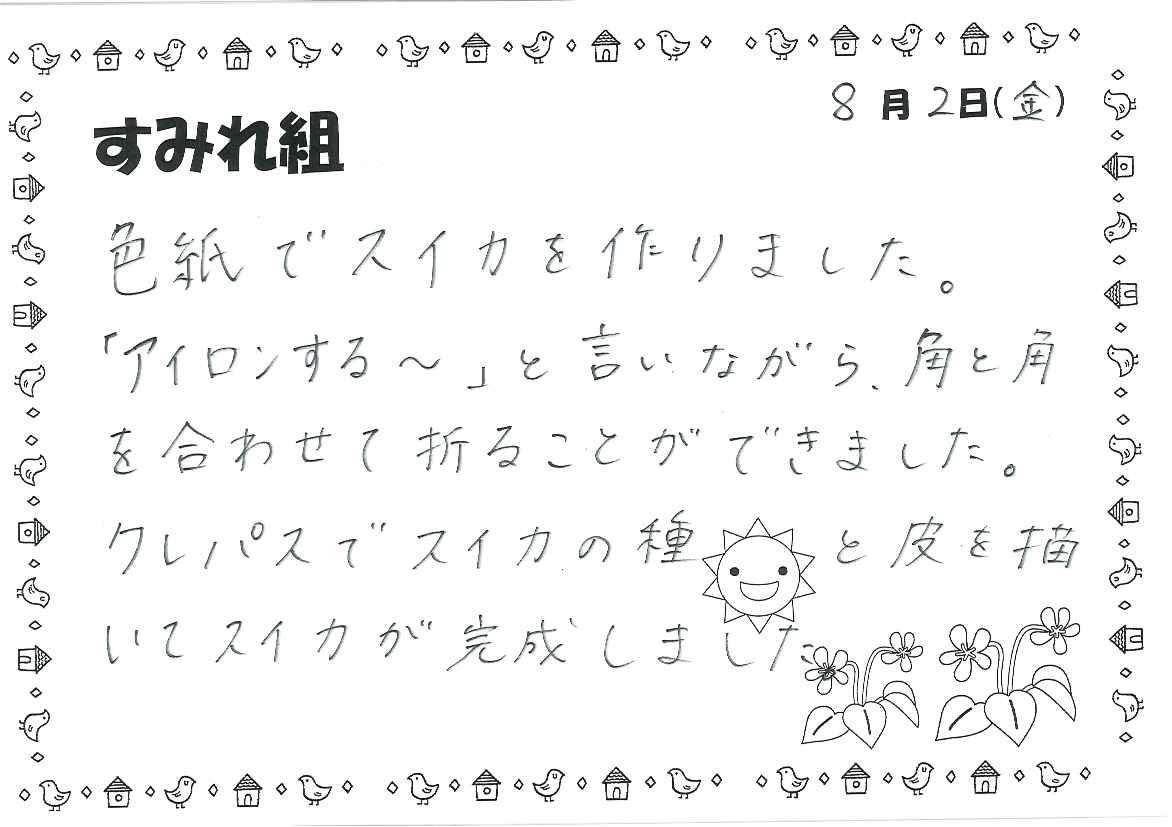 8月2日(金)
すみれ組
色紙でスイカを作りました。
「アイロンする～」と言いながら、角と角
を合わせて折ることができました。
クレパスでスイカの種と皮を描
いてスイカが完成しました